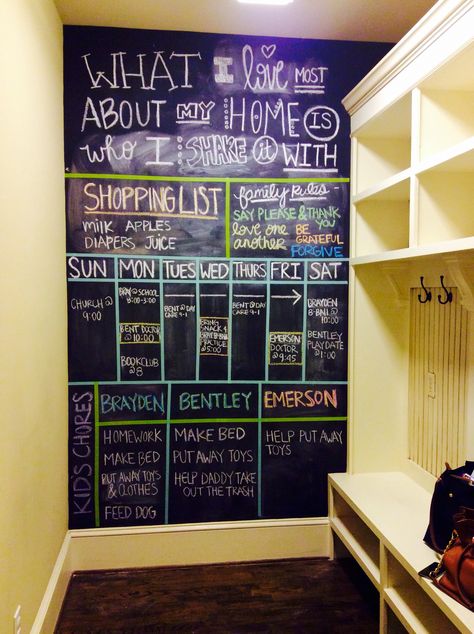 WHAT I love MOST
ABOUT MY HOME IS
who I SHARE it WITH
SHOPPING LIST
milk APPLES
DIAPERS JUICE
family Rules
SAY PLEASE & THANK YOU
love one another
BE GRATEFUL
FORGIVE
SUN MON TUES WED THURS FRI SAT
CHURCH @ 9:00
BRAY @ SCHOOL
9:00-3:00
BENT DOCTOR
@ 10:00
BOOKCLUB
@ 8
BENT @ DAY
CARE 9-1
BRING
SNACK 4
PRACTICE
@ 5:00
BENT @ DAY
CARE 9-1
EMERSON
DOCTOR
@ 9:45
BRAYDEN
@ 10:00
BENTLEY
PLAYDATE
@ 1:00
KID'S CHORES
BRAYDEN BENTLEY EMERSON
HOMEWORK
MAKE BED
PUT AWAY TOYS
& CLOTHES
FEED DOG
MAKE BED
PUT AWAY TOYS
HELP DADDY TAKE
OUT THE TRASH
HELP PUT AWAY
TOYS